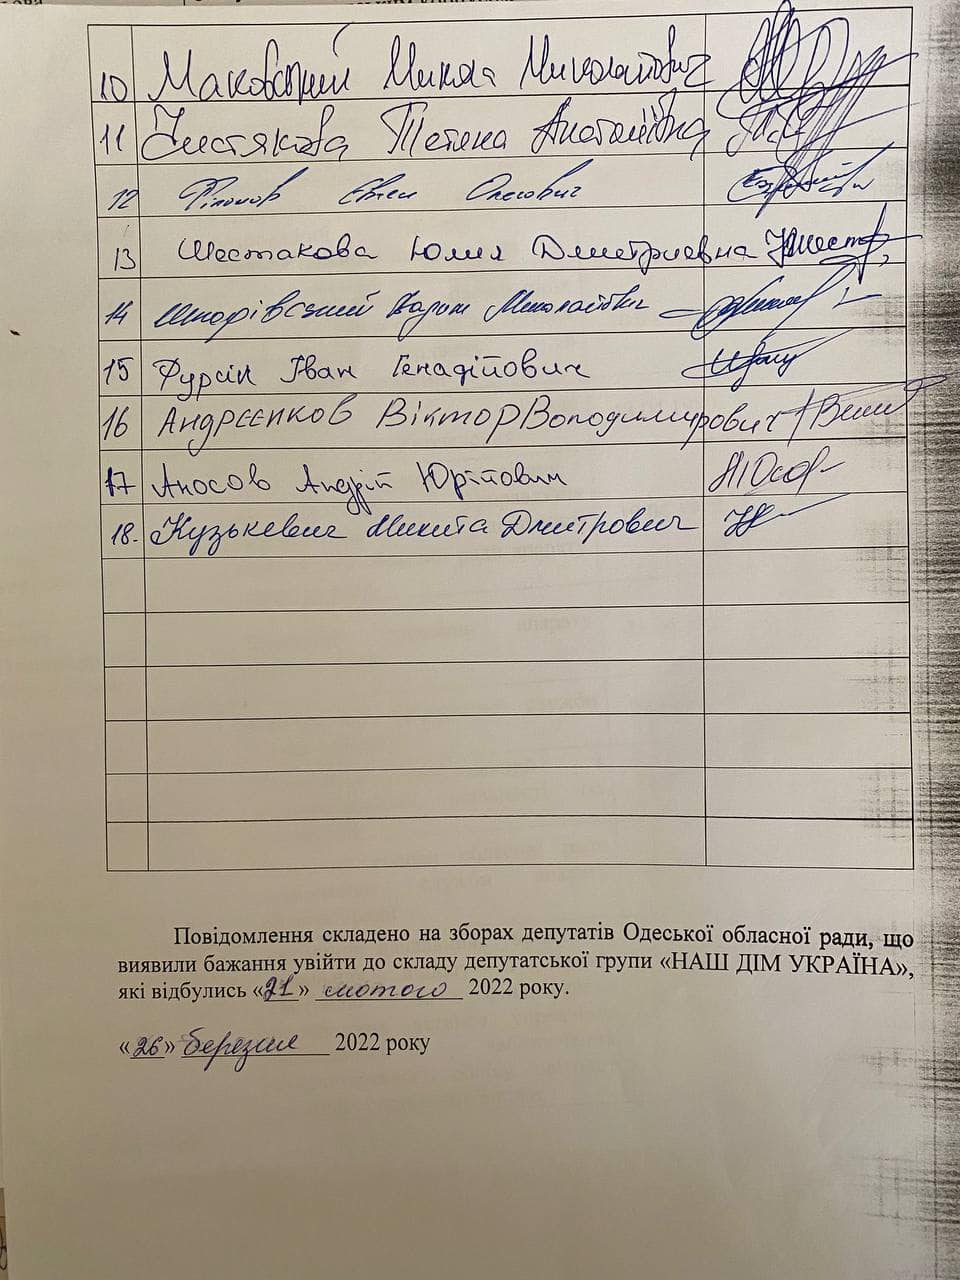 10 Маковський Микола Миколайович
11 Чистякова Тетяна Анатоліївна
12 Філонов Євген Олегович
13 Шестакова Юлия Дмитриевна
14 Миколайович
15 Фурсін Іван Генадійович
16 Андрєєнков Віктор Володимирович
17 Аносов Андрій Юрійович
18. Кузькевич Микита Дмитрович
Повідомлення складено на зборах депутатів Одеської обласної ради, що
виявили бажання увійти до складу депутатської групи «НАШ ДІМ УКРАЇНА»,
які відбулись «21» лютого 2022 року.
«26» березня 2022 року